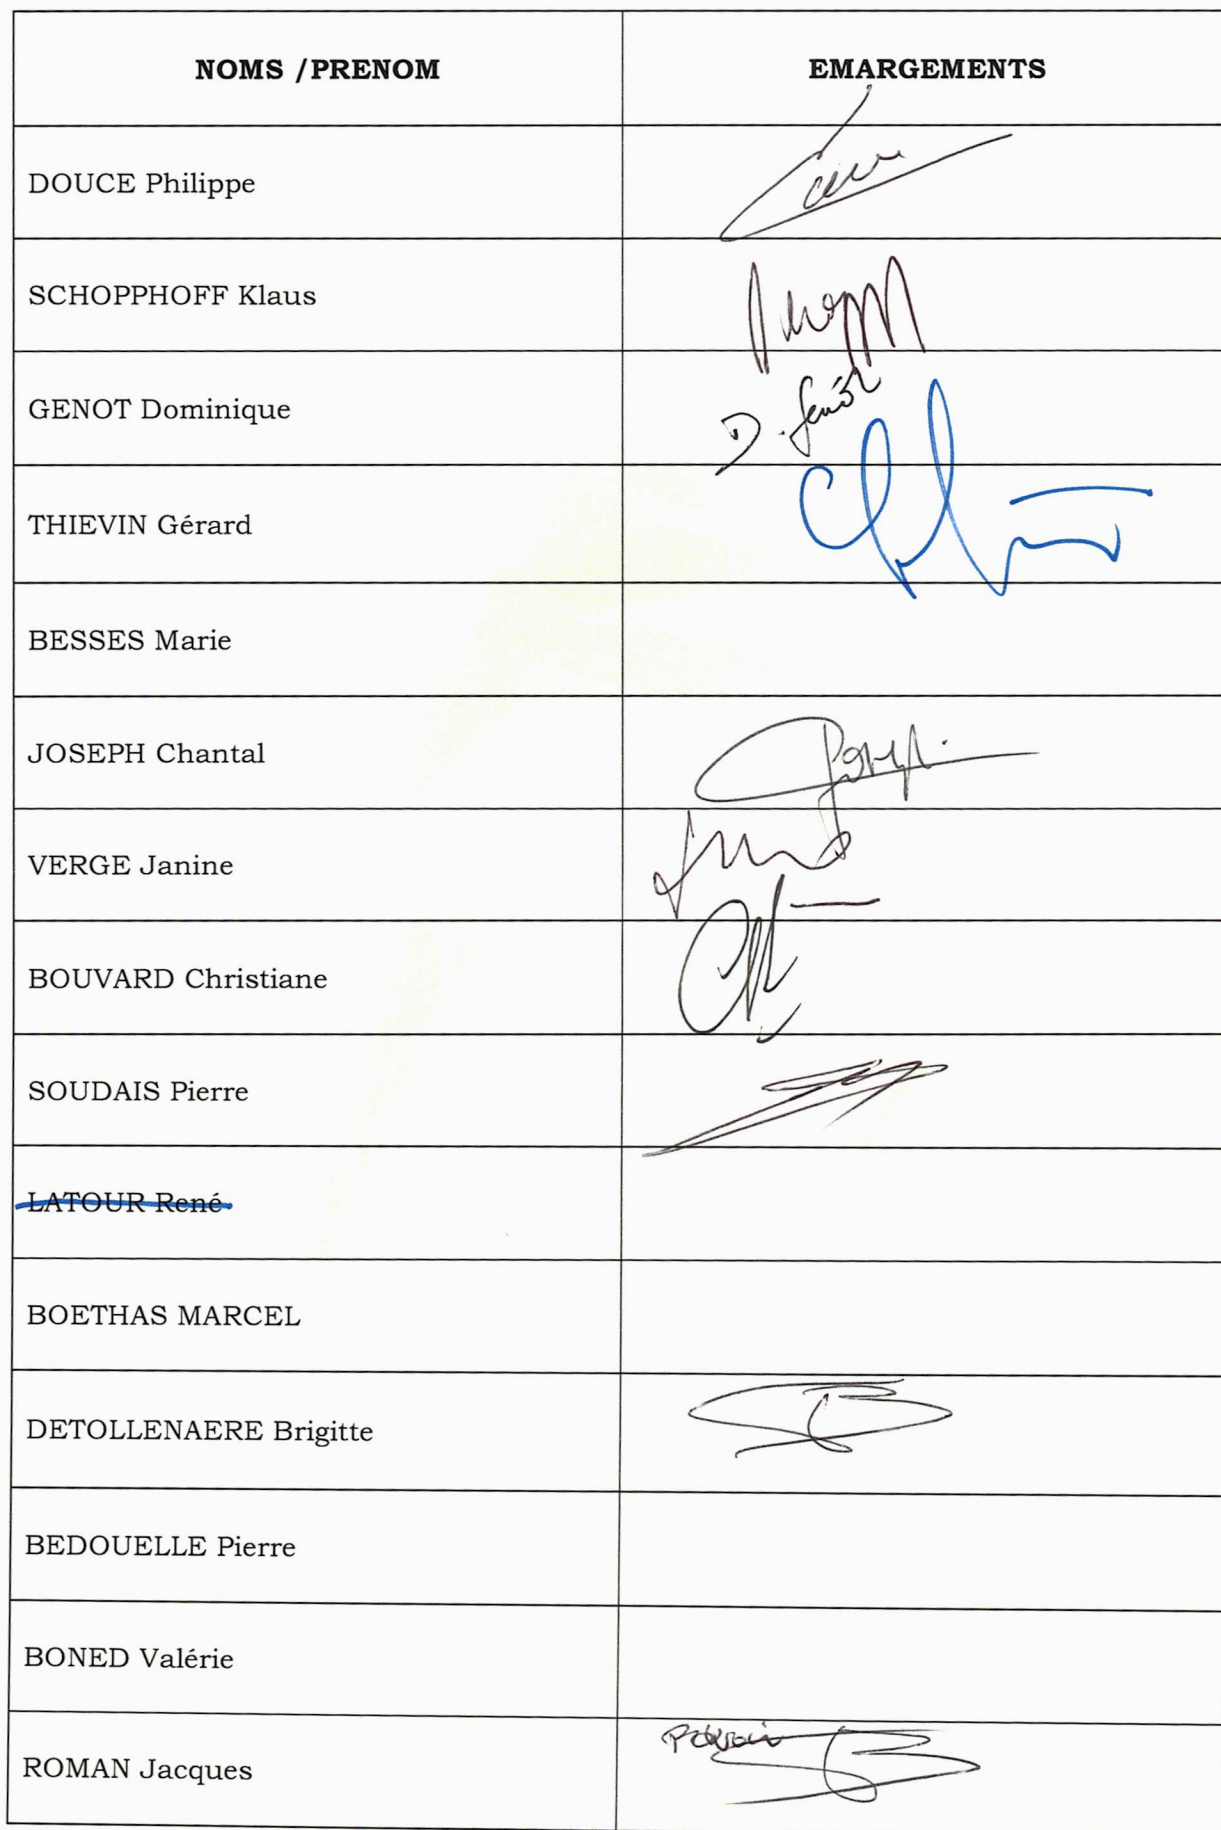 NOMS /PRENOM EMARGEMENTS
DOUCE Philippe
SCHOPPHOFF Klaus
GENOT Dominique D. Genot
THIEVIN Gérard
BESSES Marie
JOSEPH Chantal
VERGE Janine
BOUVARD Christiane
SOUDAIS Pierre
LATOUR René
BOETHAS MARCEL
DETOLLENAERE Brigitte
BEDOUELLE Pierre
BONED Valérie
ROMAN Jacques